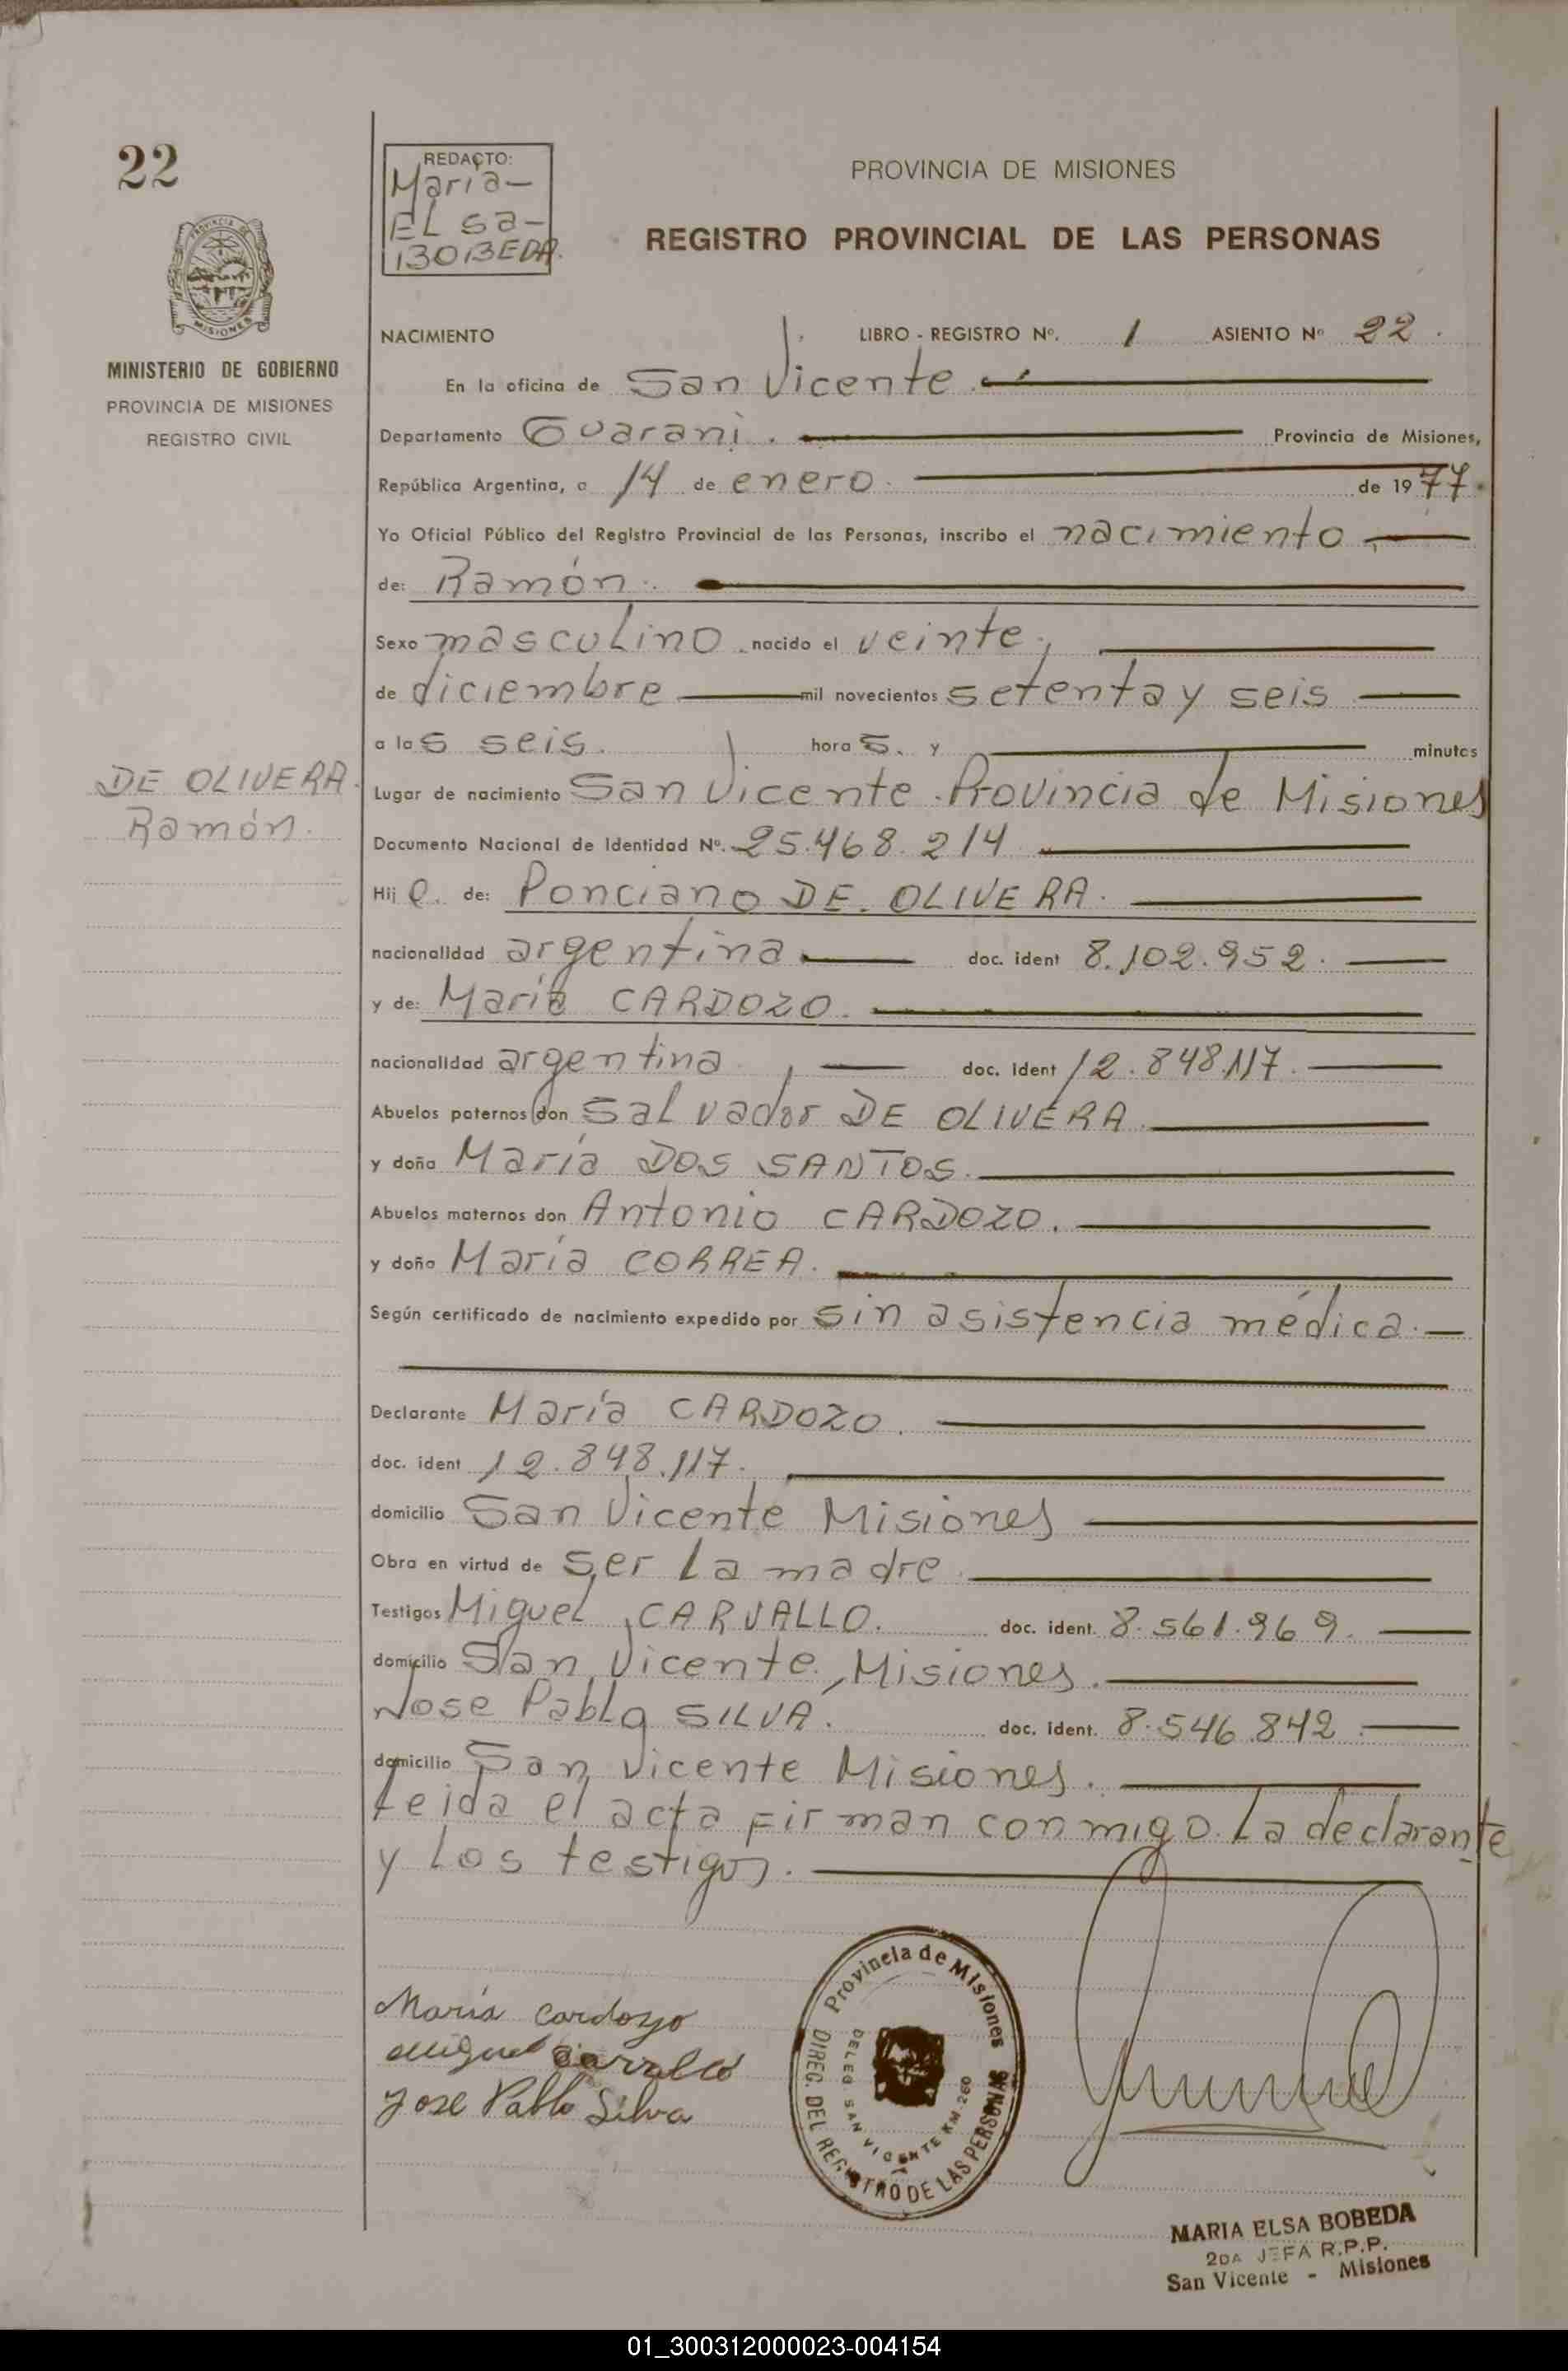 22
REDACTO:
Maria-
ELsa-
BOBEDA.
PROVINCIA DE MISIONES
REGISTRO PROVINCIAL DE LAS PERSONAS
MISIONES
MINISTERIO DE GOBIERNO
PROVINCIA DE MISIONES
REGISTRO CIVIL
NACIMIENTO LIBRO - REGISTRO Nº. 1 ASIENTO Nº 22.
En la oficina de San Vicente.
Departamento Guarani. Provincia de Misiones,
República Argentina, a 14 de enero. de 1977.
Yo Oficial Público del Registro Provincial de las Personas, inscribo el nacimiento
de: Ramón.
Sexo masculino. nacido el veinte,
de diciembre mil novecientos setenta y seis
a las seis. horas. y minutos
Lugar de nacimiento San Vicente. Provincia de Misiones
DE OLIVERA.
Ramón.
Documento Nacional de Identidad Nº. 25.468.214
Hijo. de: Ponciano DE. OLIVERA.
nacionalidad argentina doc. ident 8.102.952.
y de: María CARDOZO.
nacionalidad argentina doc. ident 12.848.117.
Abuelos paternos don Salvador DE OLIVERA.
y doña María DOS SANTOS.
Abuelos maternos don Antonio CARDOZO.
y doña María CORREA.
Según certificado de nacimiento expedido por sin asistencia médica.
Declarante María CARDOZO.
doc. ident 12.848.117.
domicilio San Vicente Misiones
Obra en virtud de ser La madre.
Testigos Miguel CARVALLO. doc. ident. 8.561.969.
domicilio San Vicente, Misiones.
Jose Pablo SILVA. doc. ident. 8.546.842.
domicilio San Vicente Misiones.
Leida el acta firman conmigo La declarante
y Los testigos.
María Cardozo
Miguel Carvallo
Jose Pablo Silva
Provincia de Misiones
DIREC. DEL REGISTRO DE LAS PERSONAS
DELEG. SAN VICENTE KM. 260
MARIA ELSA BOBEDA
2DA JEFA R.P.P.
San Vicente - Misiones
01_300312000023-004154